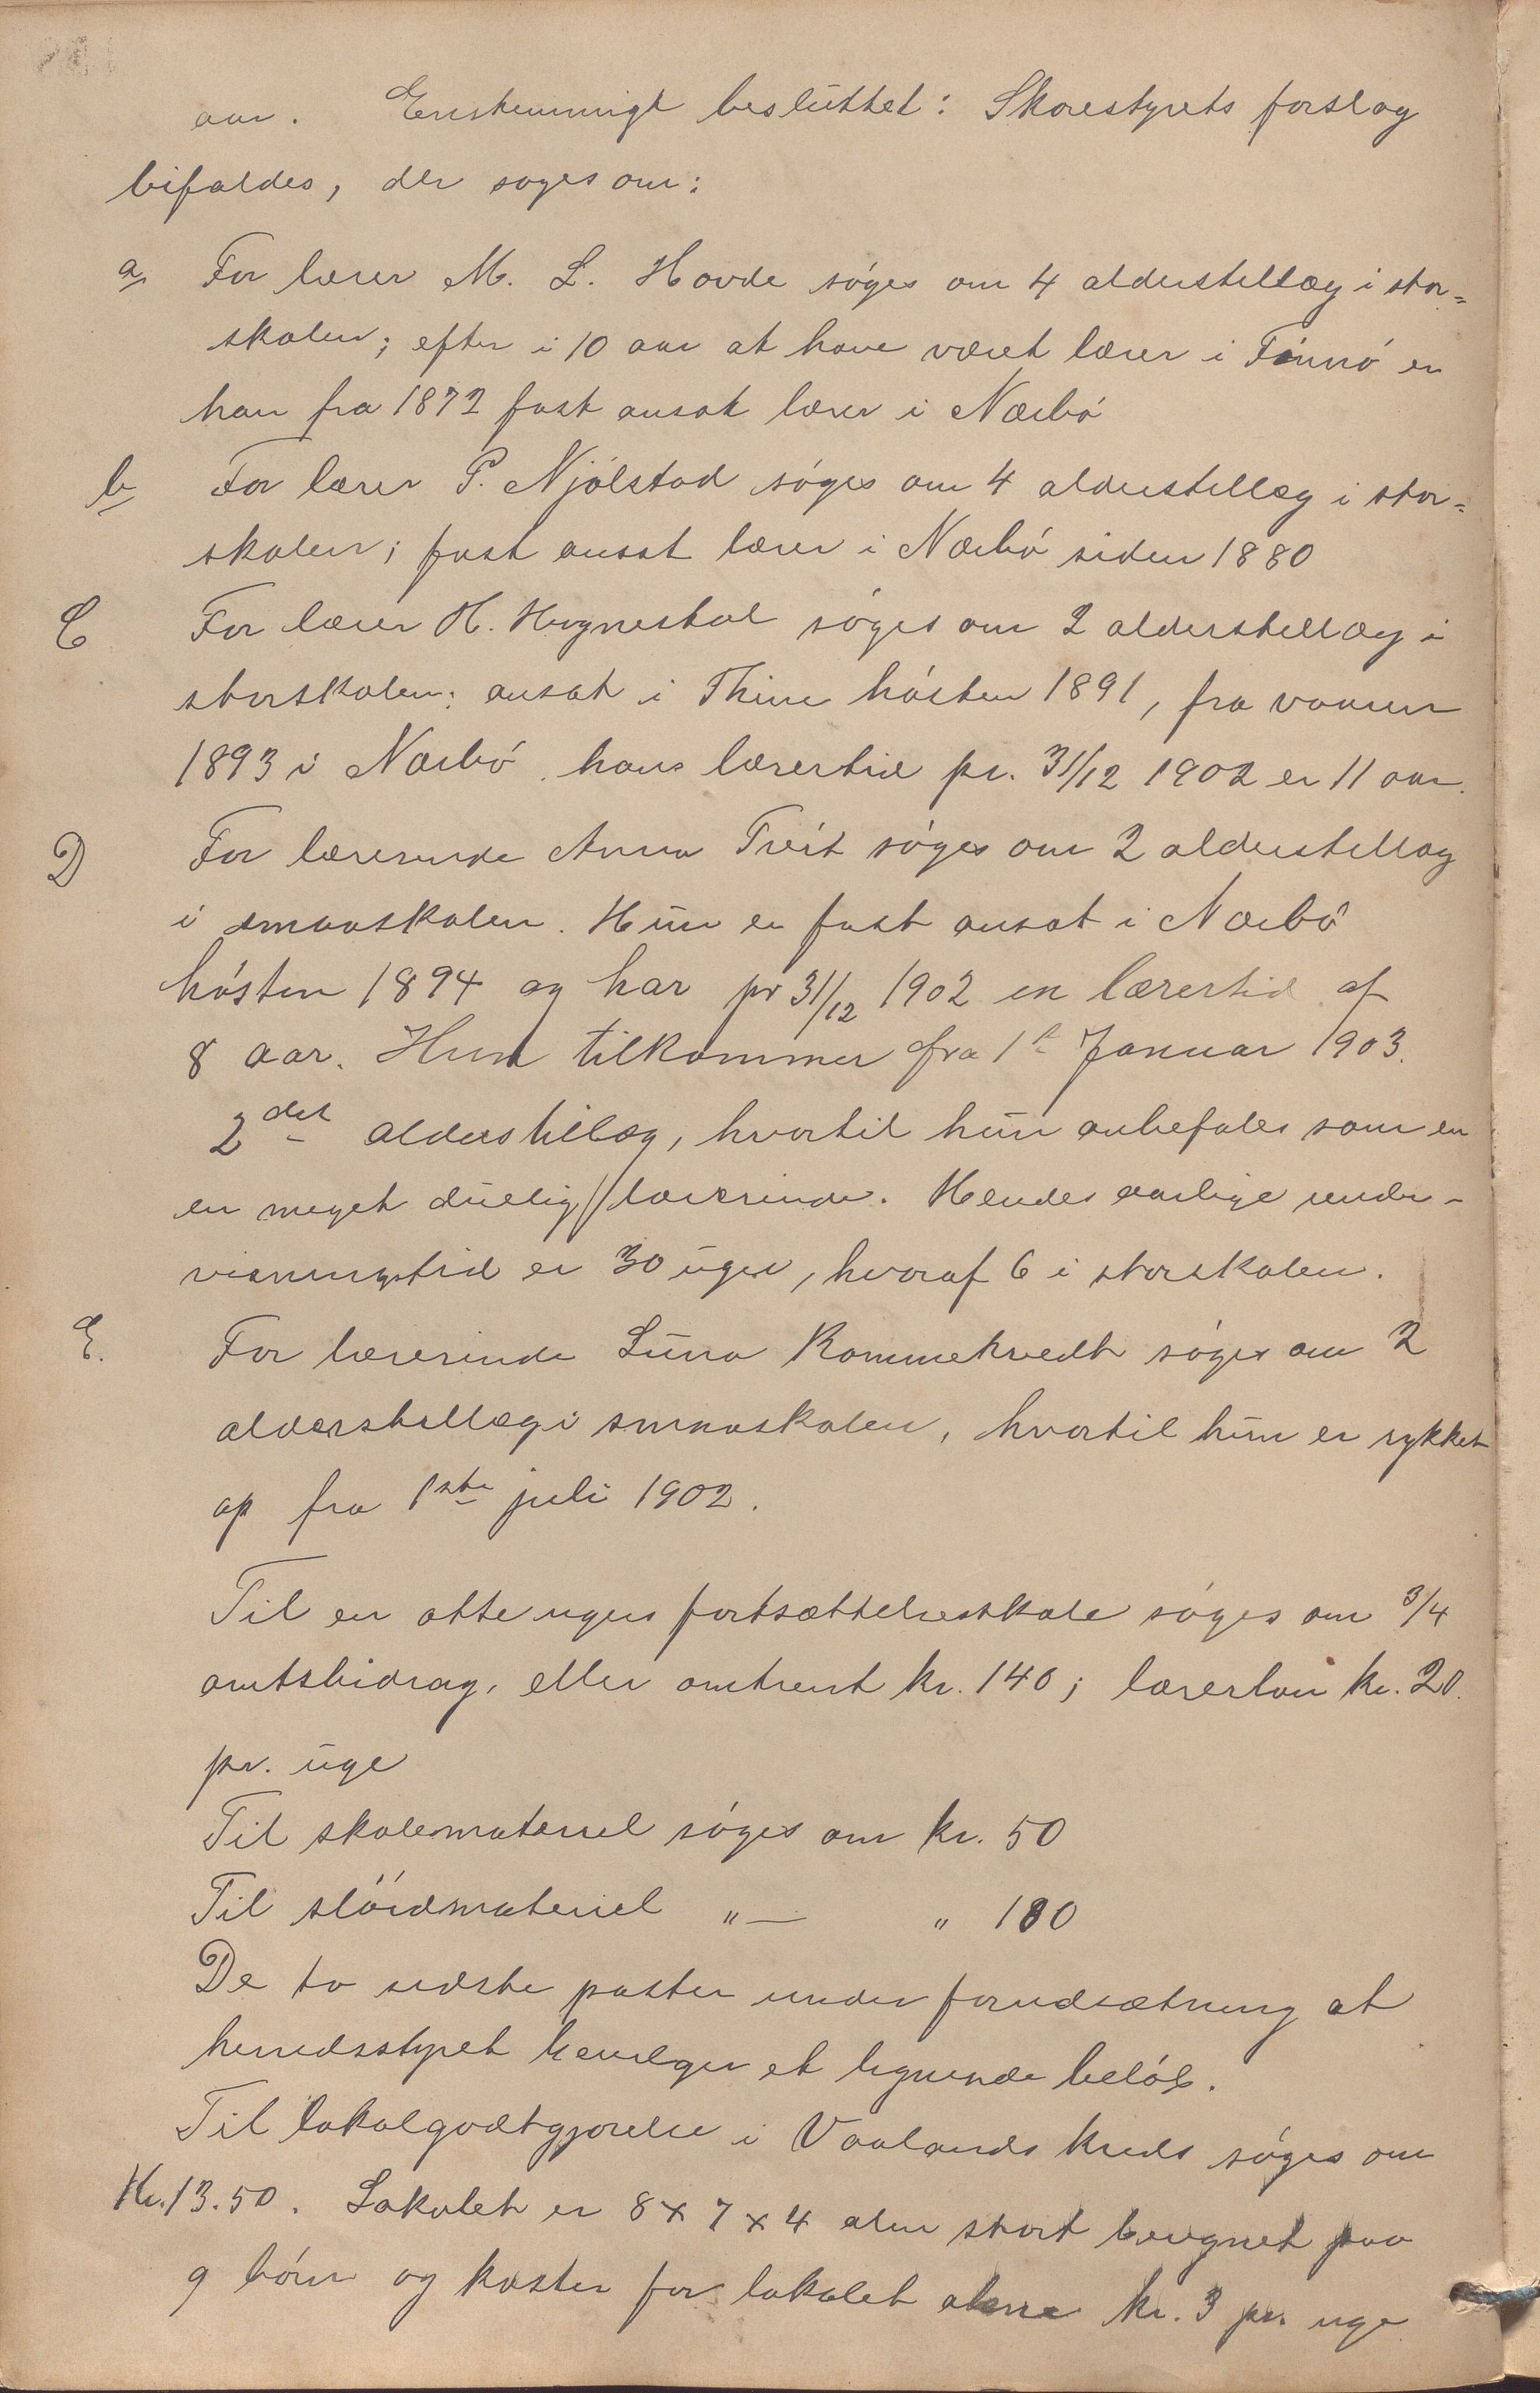 aar. Enstemmigt besluttet: Skorestyrets forslag
bifaldes, der søges om:
a For lærer M. L. Hovde søges om 4 alderstillæg i stor=
skolen; efter i 10 aar at have været lærer i Finnö er
han fra 1872 fast ansat lærer i Nærbö
b For lærer P. Njölstad söges om 4 alderstillæg i stor=
skolen; fast ansat lærer i Nærbö siden 1880
C For lærer H. Hognestad söges om 2 alderstillæg i
storskolen; ansat i Thime hösten 1891, fra vaaren
1893 i Nærbö, hans lærertid pr. 31/12 1902 er 11 aar.
D For lærerinde Anna Tveit söges om 2 alderstillæg
i smaaskolen. Hun er fast ansat i Nærbö
hösten 1894 og har pr 31/12 1902 en lærertid af
8 aar. Hun tilkommer fra 1st Januar 1903.
2det alderstillæg, hvortil hun anbefales som en
en meget duelig lærerinde. Hendes aarlige under-
visningstid er 30 uger, hvoraf 6 i storskolen.
E. For lærerinde Rommetvedt söges om 2
alderstillæg i smaaskolen, hvortil hun er rykket
op fra 1ste juli 1902.
Til en otte ugers fortsættelsesskole söges om 3/4
amtsbidrag, eller omtrent kr. 140; lærerlön kr. 20.
pr. uge
Til skolemateriel söges om kr. 50
Til slöidmateriel "— " 100
De to sidste poster under forudsætning at
herredsstyret bevilger et lignende belöb.
Til lokalgodtgjørelse i Vaalands kreds söges om
Kr. 13.50. Lokalet er 8 x 7 x 4 alen stort beregnet paa
9 börn og koster for lokalet alene kr. 3 pr. uge